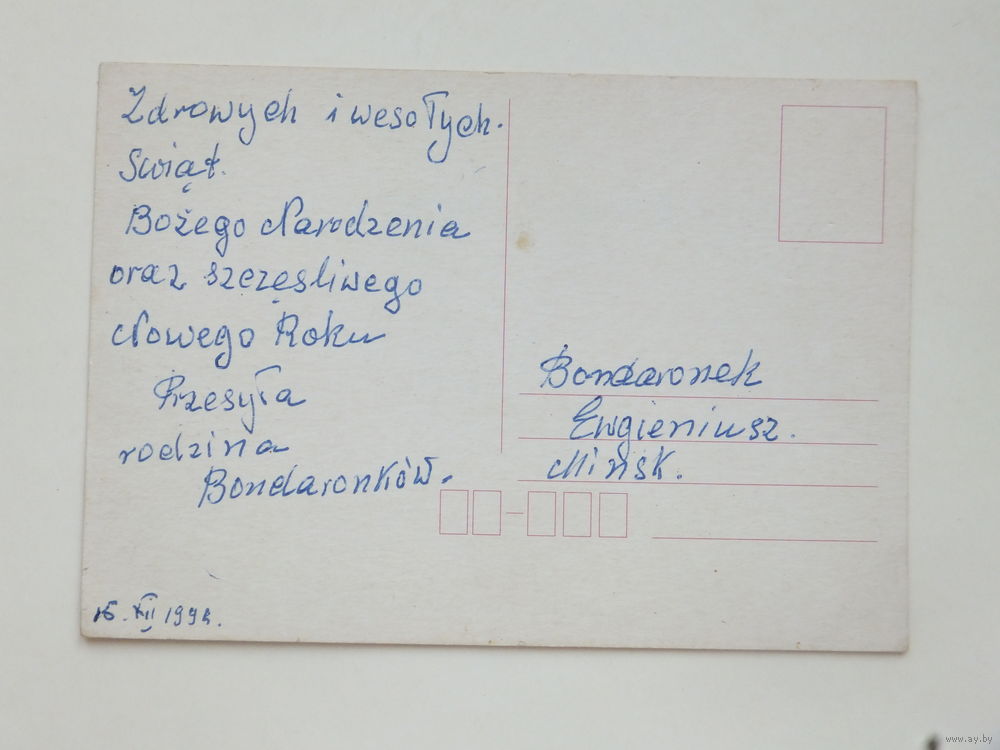 Zdrowych i wesołych.
Swiąt.
Bożego Narodzenia
oraz szczęsliwego
Nowego Roku
Przesyła
rodzina
Bondaronków.
Bondaronek
Ewgieniusz.
Mińsk.
XII
www.ay.by